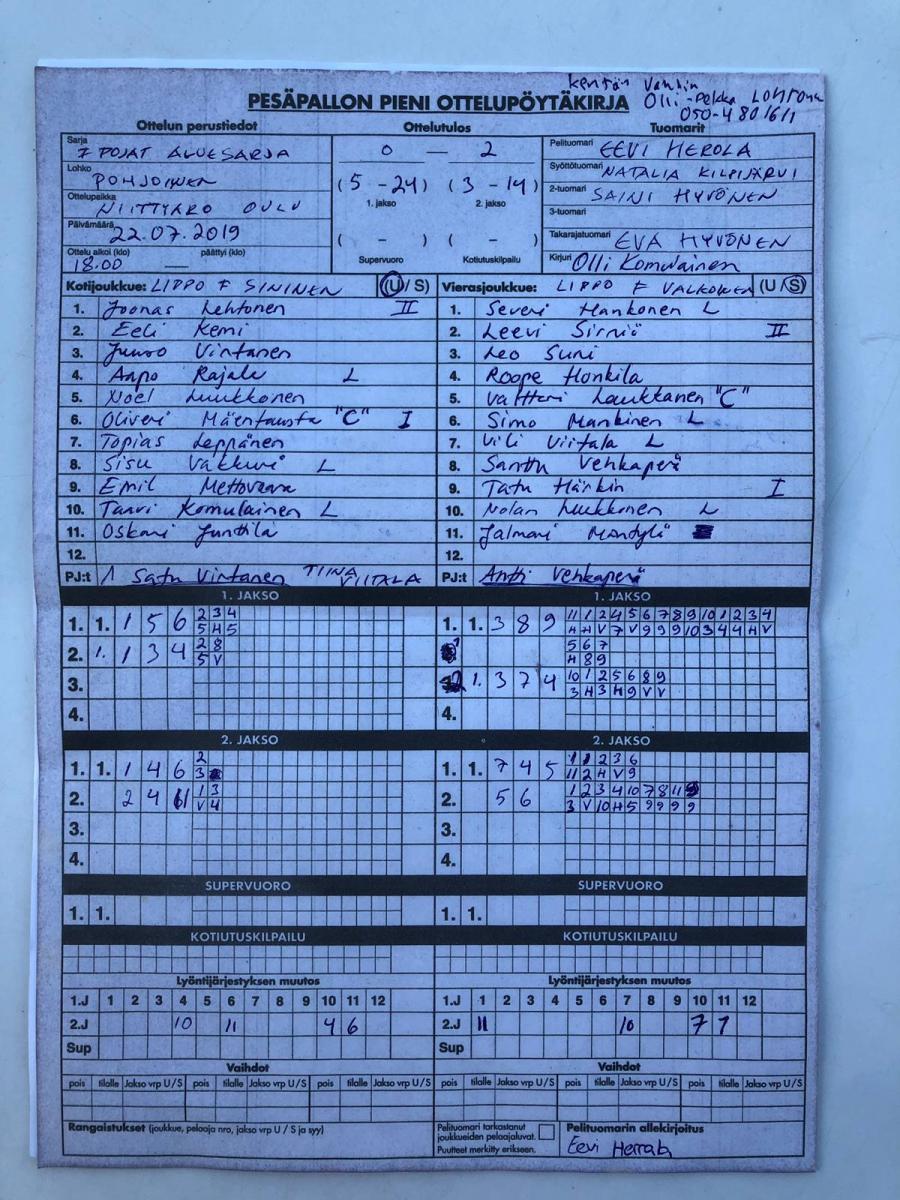 kentän vanhin
PESÄPALLON PIENI OTTELUPÖYTÄKIRJA Olli-Pekka
Ottelun perustiedot Ottelutulos Tuomarit
Sarja POJAT ALUESARJA
0 — 2
Pelituomari EEVI HEROLA
Lohko POHJOINEN
Syöttötuomari NATALIA KILPIJÄRVI
Ottelupaikka NIITTYARO OULU
(5 - 24) (3 - 14)
1. jakso 2. jakso
2-tuomari SAINI HYVÖNEN
3-tuomari
Päivämäärä 22.07.2019
Ottelu alkoi (klo) päättyi (klo)
18.00 —
( - ) ( - )
Supervuoro Kotiutuskilpailu
Takarajatuomari EVA HYVÖNEN
Kirjuri Olli Komulainen
Kotijoukkue: LIPPO F SININEN (U/S) Vierasjoukkue: LIPPO F VALKOINEN (U/S)
1. Joonas Lehtonen II 1. Severi Hankonen L
2. Eeli Kemi 2. Leevi Sirniö II
3. Juuso Virtanen 3. Leo Suni
4. Aapo Rajala L 4. Roope Honkila
5. Noel Luukkonen 5. Valtteri Laukkanen "C"
6. Oliveri Mäentausta "C" I 6. Simo Mankinen L
7. Topias Leppänen 7. Vili Viitala L
8. Sisu Vakkuri L 8. Santtu Vehkaperä
9. Emil Mettovaara 9. Tatu Härkin I
10. Taavi Komulainen L 10. Nolan Luukkonen L
11. Oskari Junttila 11. Jalmari Mäntylä
12. 12.
PJ:t 1 Satu Virtanen TIINA VIITALA PJ:t Antti Vehkaperä
1. JAKSO 1. JAKSO
1. 1. 1 5 6 2 3 4 1. 1. 3 8 9 11 1 2 4 5 6 7 8 9 10 1 2 3 4
5 H 5 H H V 7 V 9 9 9 10 3 4 4 H V
2. 1. 1 3 4 2 8 5 6 7
5 V H 8 9
3. 2 1. 3 7 4 10 1 2 5 6 8 9
3 H 3 H 9 V V
4. 4.
2. JAKSO 2. JAKSO
1. 1. 1 4 6 2 1. 1. 7 4 5 1 1 2 3 6
3 11 2 H V 9
2. 2 4 11 1 3 2. 5 6 1 2 3 4 10 7 8 11 9
V 4 3 V 10 H 5 9 9 9 9
3. 3.
4. 4.
SUPERVUORO SUPERVUORO
1. 1. 1. 1.
KOTIUTUSKILPAILU KOTIUTUSKILPAILU
Lyöntijärjestyksen muutos Lyöntijärjestyksen muutos
1.J 1 2 3 4 5 6 7 8 9 10 11 12 1.J 1 2 3 4 5 6 7 8 9 10 11 12
2.J 10 11 4 6 2.J 11 10 7 1
Sup Sup
Vaihdot Vaihdot
pois tilalle Jakso vrp U/S pois tilalle Jakso vrp U/S pois tilalle Jakso vrp U/S pois tilalle Jakso vrp U/S pois tilalle Jakso vrp U/S pois tilalle Jakso vrp U/S
Rangaistukset (joukkue, pelaaja nro, jakso vrp U / S ja syy)
Pelituomari tarkastanut
joukkueiden pelaajaluvat.
Puutteet merkitty erikseen.
Pelituomarin allekirjoitus
Eevi